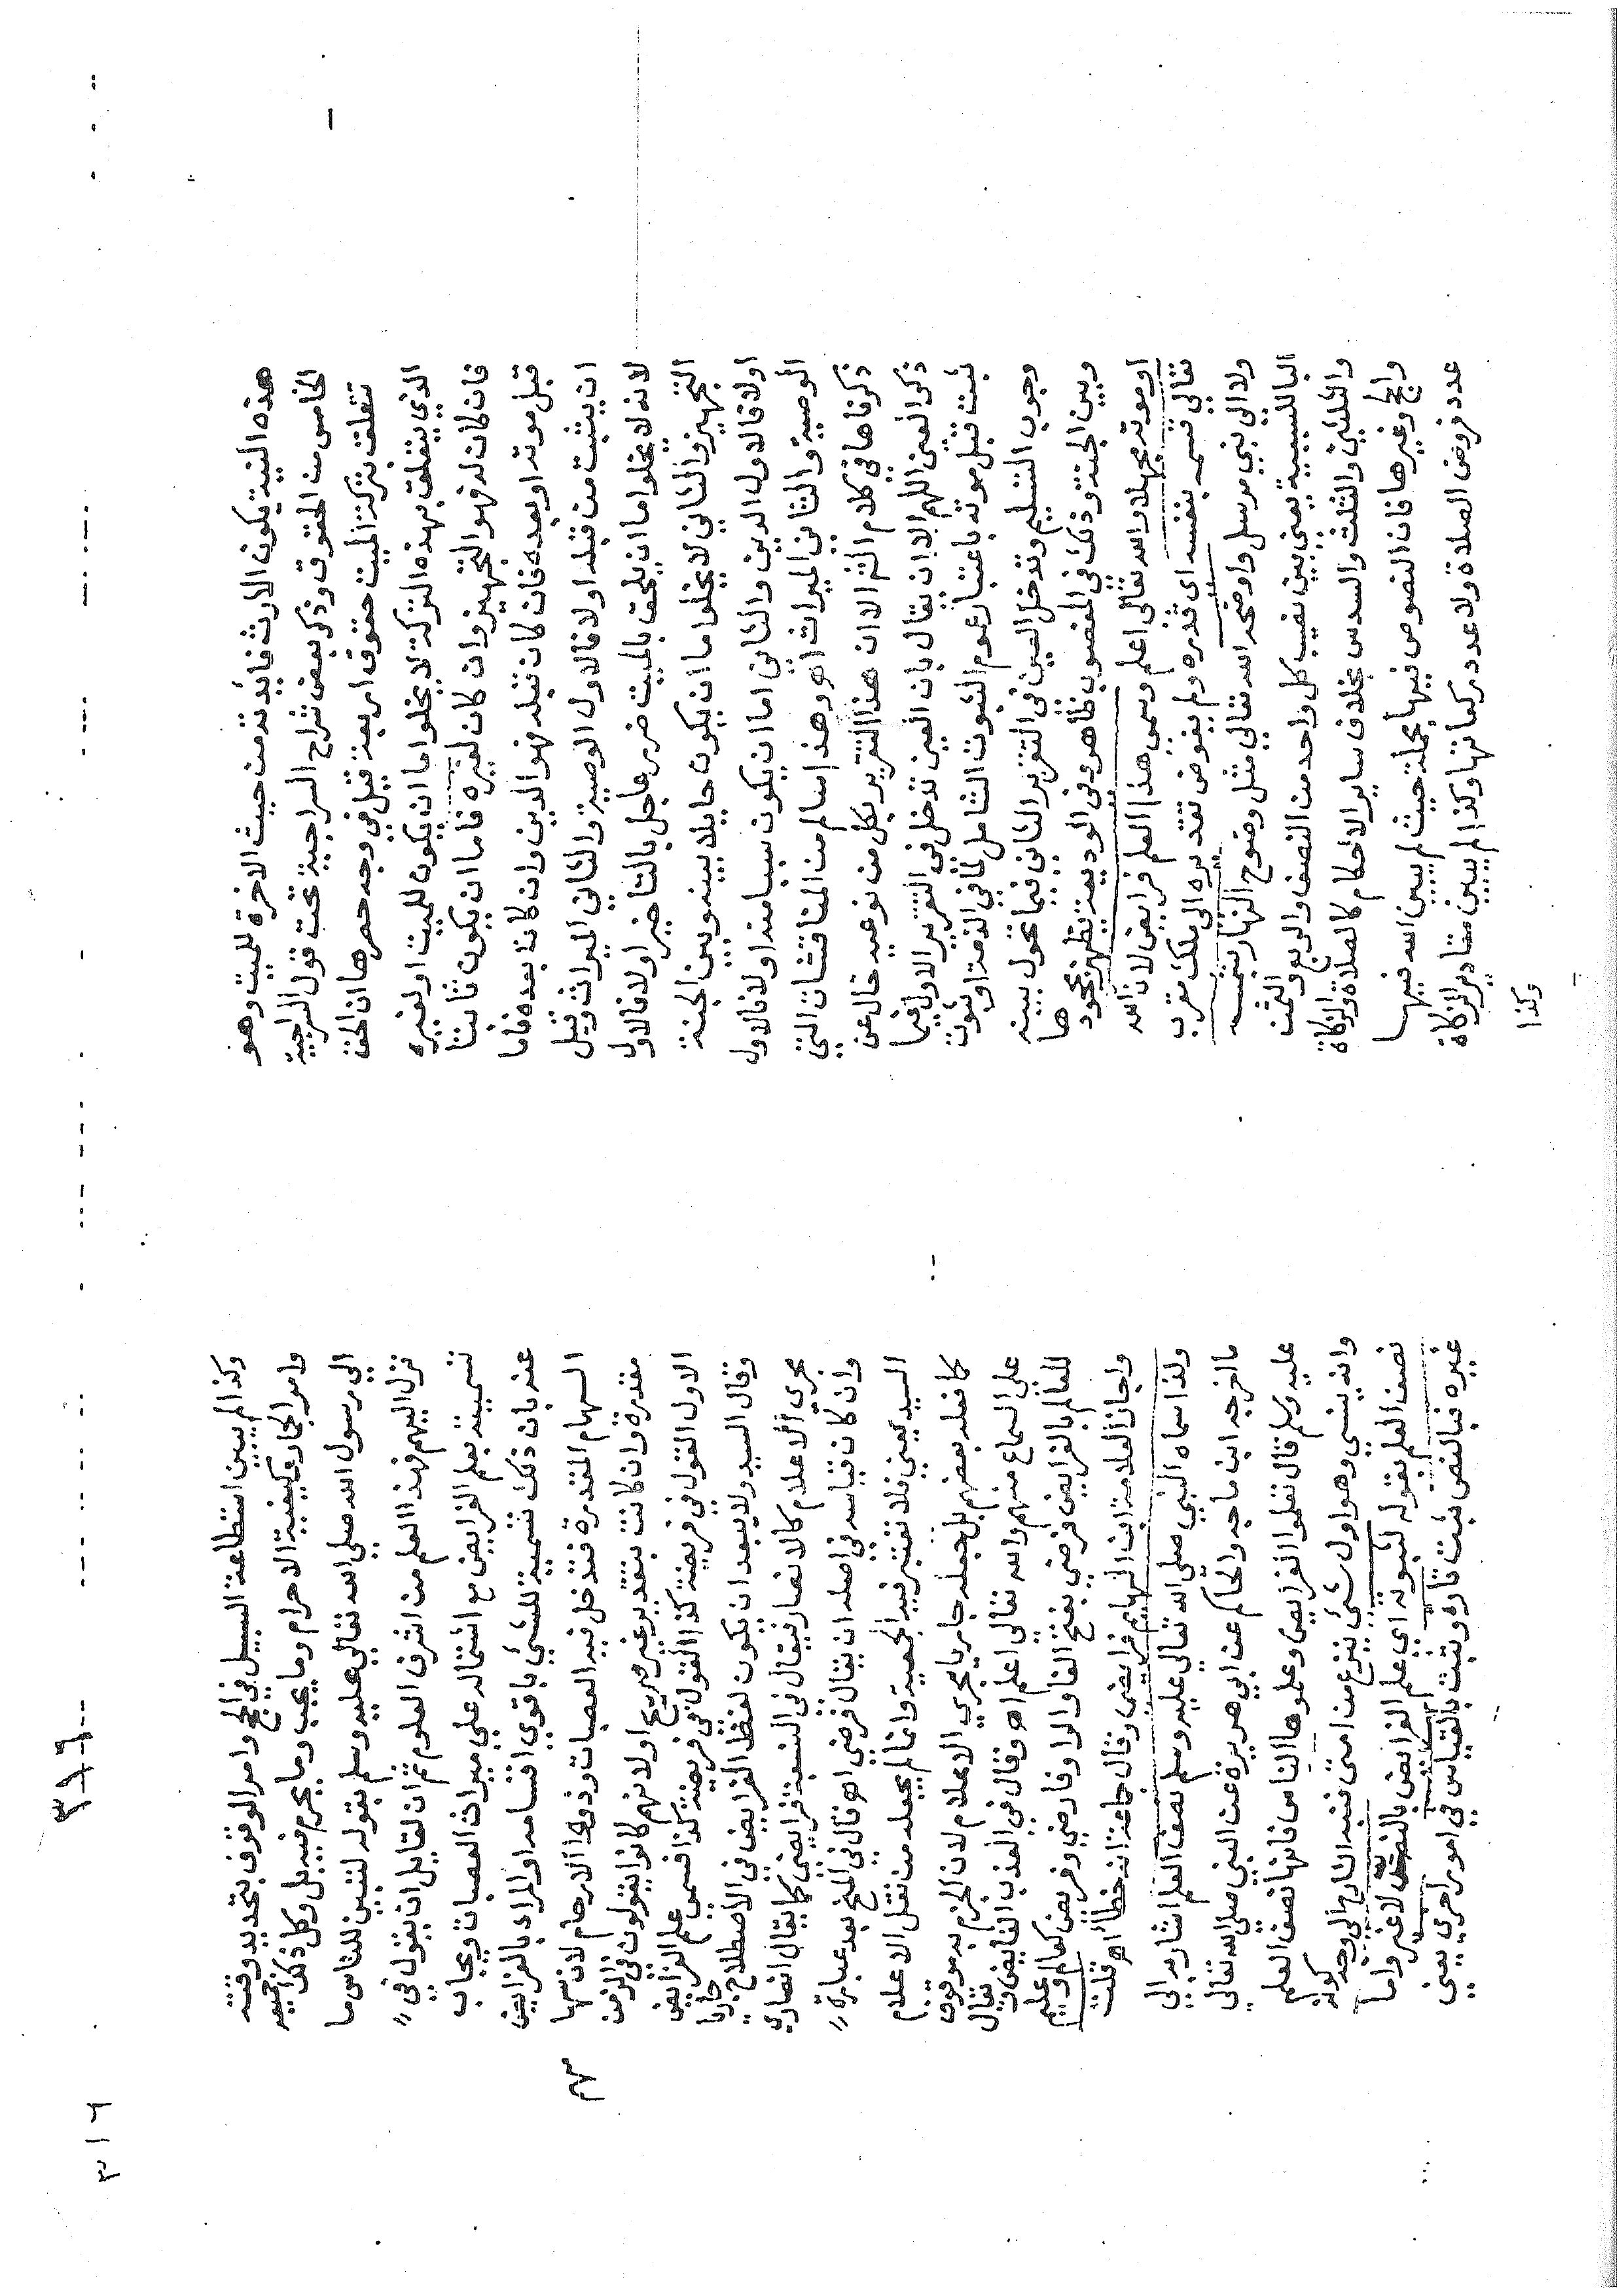 هذه النية يكون الارث فايدته من حيث الاخرة للميت وهو
الخامس من الحقوق وذكر بعض شراح السراجية تحت قول السراجية
تتعلق بتركة الميت حقوق اربعة قيل في وجه حصرها ان الحق
الذي يتعلق بهذه التركة لا يخلوا اما ان يكون للميت او لغيره
فان كان له فهو التجهيز وان كان لغيره فاما ان يكون ثابتا
قبل موته او بعده فان كان قبله فهو الدين وان كان بعده فاما
ان يثبت من قبله اولا فالاول الوصية والثاني الميراث وقيل
لانه لا يخلوا اما ان يلحق بالميت ضرر عاجل بالتاخير اولا فالاول
التجهيز والثاني لا يخلوا اما ان يكون حايلا بينه وبين الجنة
اولا فالاول الدين والثاني اما ان يكون سببا منه اولا فالاول
الوصية والثاني الميراث اهـ وهذا سالم من المناقشات التي
ذكرناها في كلام الشم الا ان هذا التقرير بكل من نوعيه خال عن
ذكر العين اللهم الا ان يقال بان العين تدخل في التقرير الاول فيما
ثبت قبل موته باعتبار عموم الثبوت الشامل لما في الذمة او ثبوت
وجوب التسليم وتدخل العين في التقرير الثاني فيما تحول بينه
وبين الجنة وذلك في المغصوب ظاهر وفي الوديعة يظهر بجحودها
او موته مجهلا والله تعالى اعلم وسمي هذا العلم فرايض لان الله
تعالي قسمه بنفسه اى قدره ولم يفوض تقديره الى ملك مقرب
ولا الي نبي مرسل واوضحه الله تعالي مثل وضوح النهار بشمسه
البا للسببية يعني بين نصيب كل واحد من النصف والربع والثمن
والثلثين والثلث والسدس بخلاف ساير الاحكام كالصلاة والزكاة
والحج وغيرها فان النصوص فيها مجملة حيث لم يبين الله فيها
عدد فروض الصلاة ولا عدد ركعاتها وكذا لم يبين مقادير الزكاة
وكذا
وكذا لم يبين استطاعة السبيل في الحج وامر الوقوف بتحديد وقته
وامر الجمار وكيفية الاحرام وما يجب وما يحرم فيه بل وكل ذلك جميعه
الي رسول الله صلي الله تعالي عليه وسلم بقوله لتبين للناس ما
نزل اليهم فهذا العلم من اشرف العلوم ثم ان لقايل ان يقول في
تسميته بعلم الفرايض مع اشتماله علي ميراث العصبات ويجاب
عنه بان ذلك تسمية للشئ باقوي اقسامه او المراد بالفرايض
السهام المقدرة فتدخل فيه العصبات وذووا الارحام لان سهامهم
مقدرة وان كانت بتقدير غير صريح اولا نهم كانوا يقولون في الزمن
الاول القول في فريضة كذا القول في فريضة كذا فسمي علم الفرايض
وقال السيد ولا يبعد ان يكون لفظ الفرايض في الاصطلاح جاريا
مجري الاعلام كالانصار فيقال في النسبة فرايضي كما يقال انصاري
وان كان قياسه في اصله ان يقال فرضي اهـ قال في المنح بعد عبارة
السيد يعني فلا تعتبر فيه الجمعية وانما لم يجعله من نقل الاعلام
كما فعله بعضهم بل جعله جاريا مجري الاعلام لان الجزم به موقوف
علي السماع منهم والله تعالي اعلم اهـ وقال في العذب الفايض ويقال
للعالم بالفرايض فرضي بفتح الفا والرا وفارضي وفريض كعالم وعليم
واجاز العلامة ابن الهايم فرايضي وقال جماعة انه خطأ اهـ قلت
ولذا سماه النبي صلي الله تعالي عليه وسلم نصف العلم اشار به الي
ما اخرجه ابن ماجه والحاكم عن ابي هريرة عن النبي صلي الله تعالي
عليه وسلم قال تعلموا الفرايض وعلموها الناس فانها نصف العلم
وانه ينسي وهو اول شئ ينزع من امتي فنبه الشارح الي وجه كونه
نصف العلم بقوله لثبوته اي علم الفرائض بالنص لا غير واما
غيره فبالنص ثبت تارة وثبت بالقياس في امور اخري يعني
٣٦٦
٣١٦